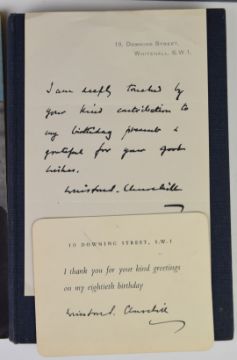 10, DOWNING STREET,
WHITEHALL, S.W.1.
I am deeply touched by
your kind contribution to
my birthday present &
grateful for your good
wishes.
Winston S. Churchill
10 DOWNING STREET, S.W.1
I thank you for your kind greetings
on my eightieth birthday
Winston S. Churchill